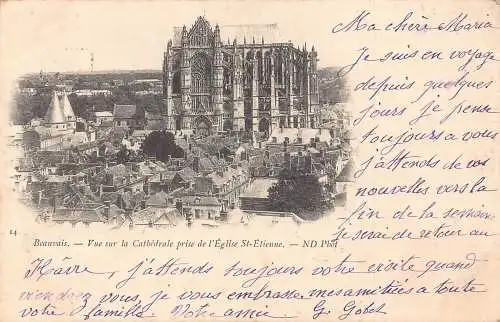 Ma chère Maria
Je suis en voyage
depuis quelques
jours je pense
toujours a vous
j'attends de vos
nouvelles vers la
fin de la semaine
je serai de retour au
14
Beauvais. — Vue sur la Cathédrale prise de l'Église St-Étienne. — ND Phot
Hâvre, j'attends toujours votre visite quand
viendrez vous, je vous embrasse mes amitiés a toute
votre famille. Votre amie. G. Gobet